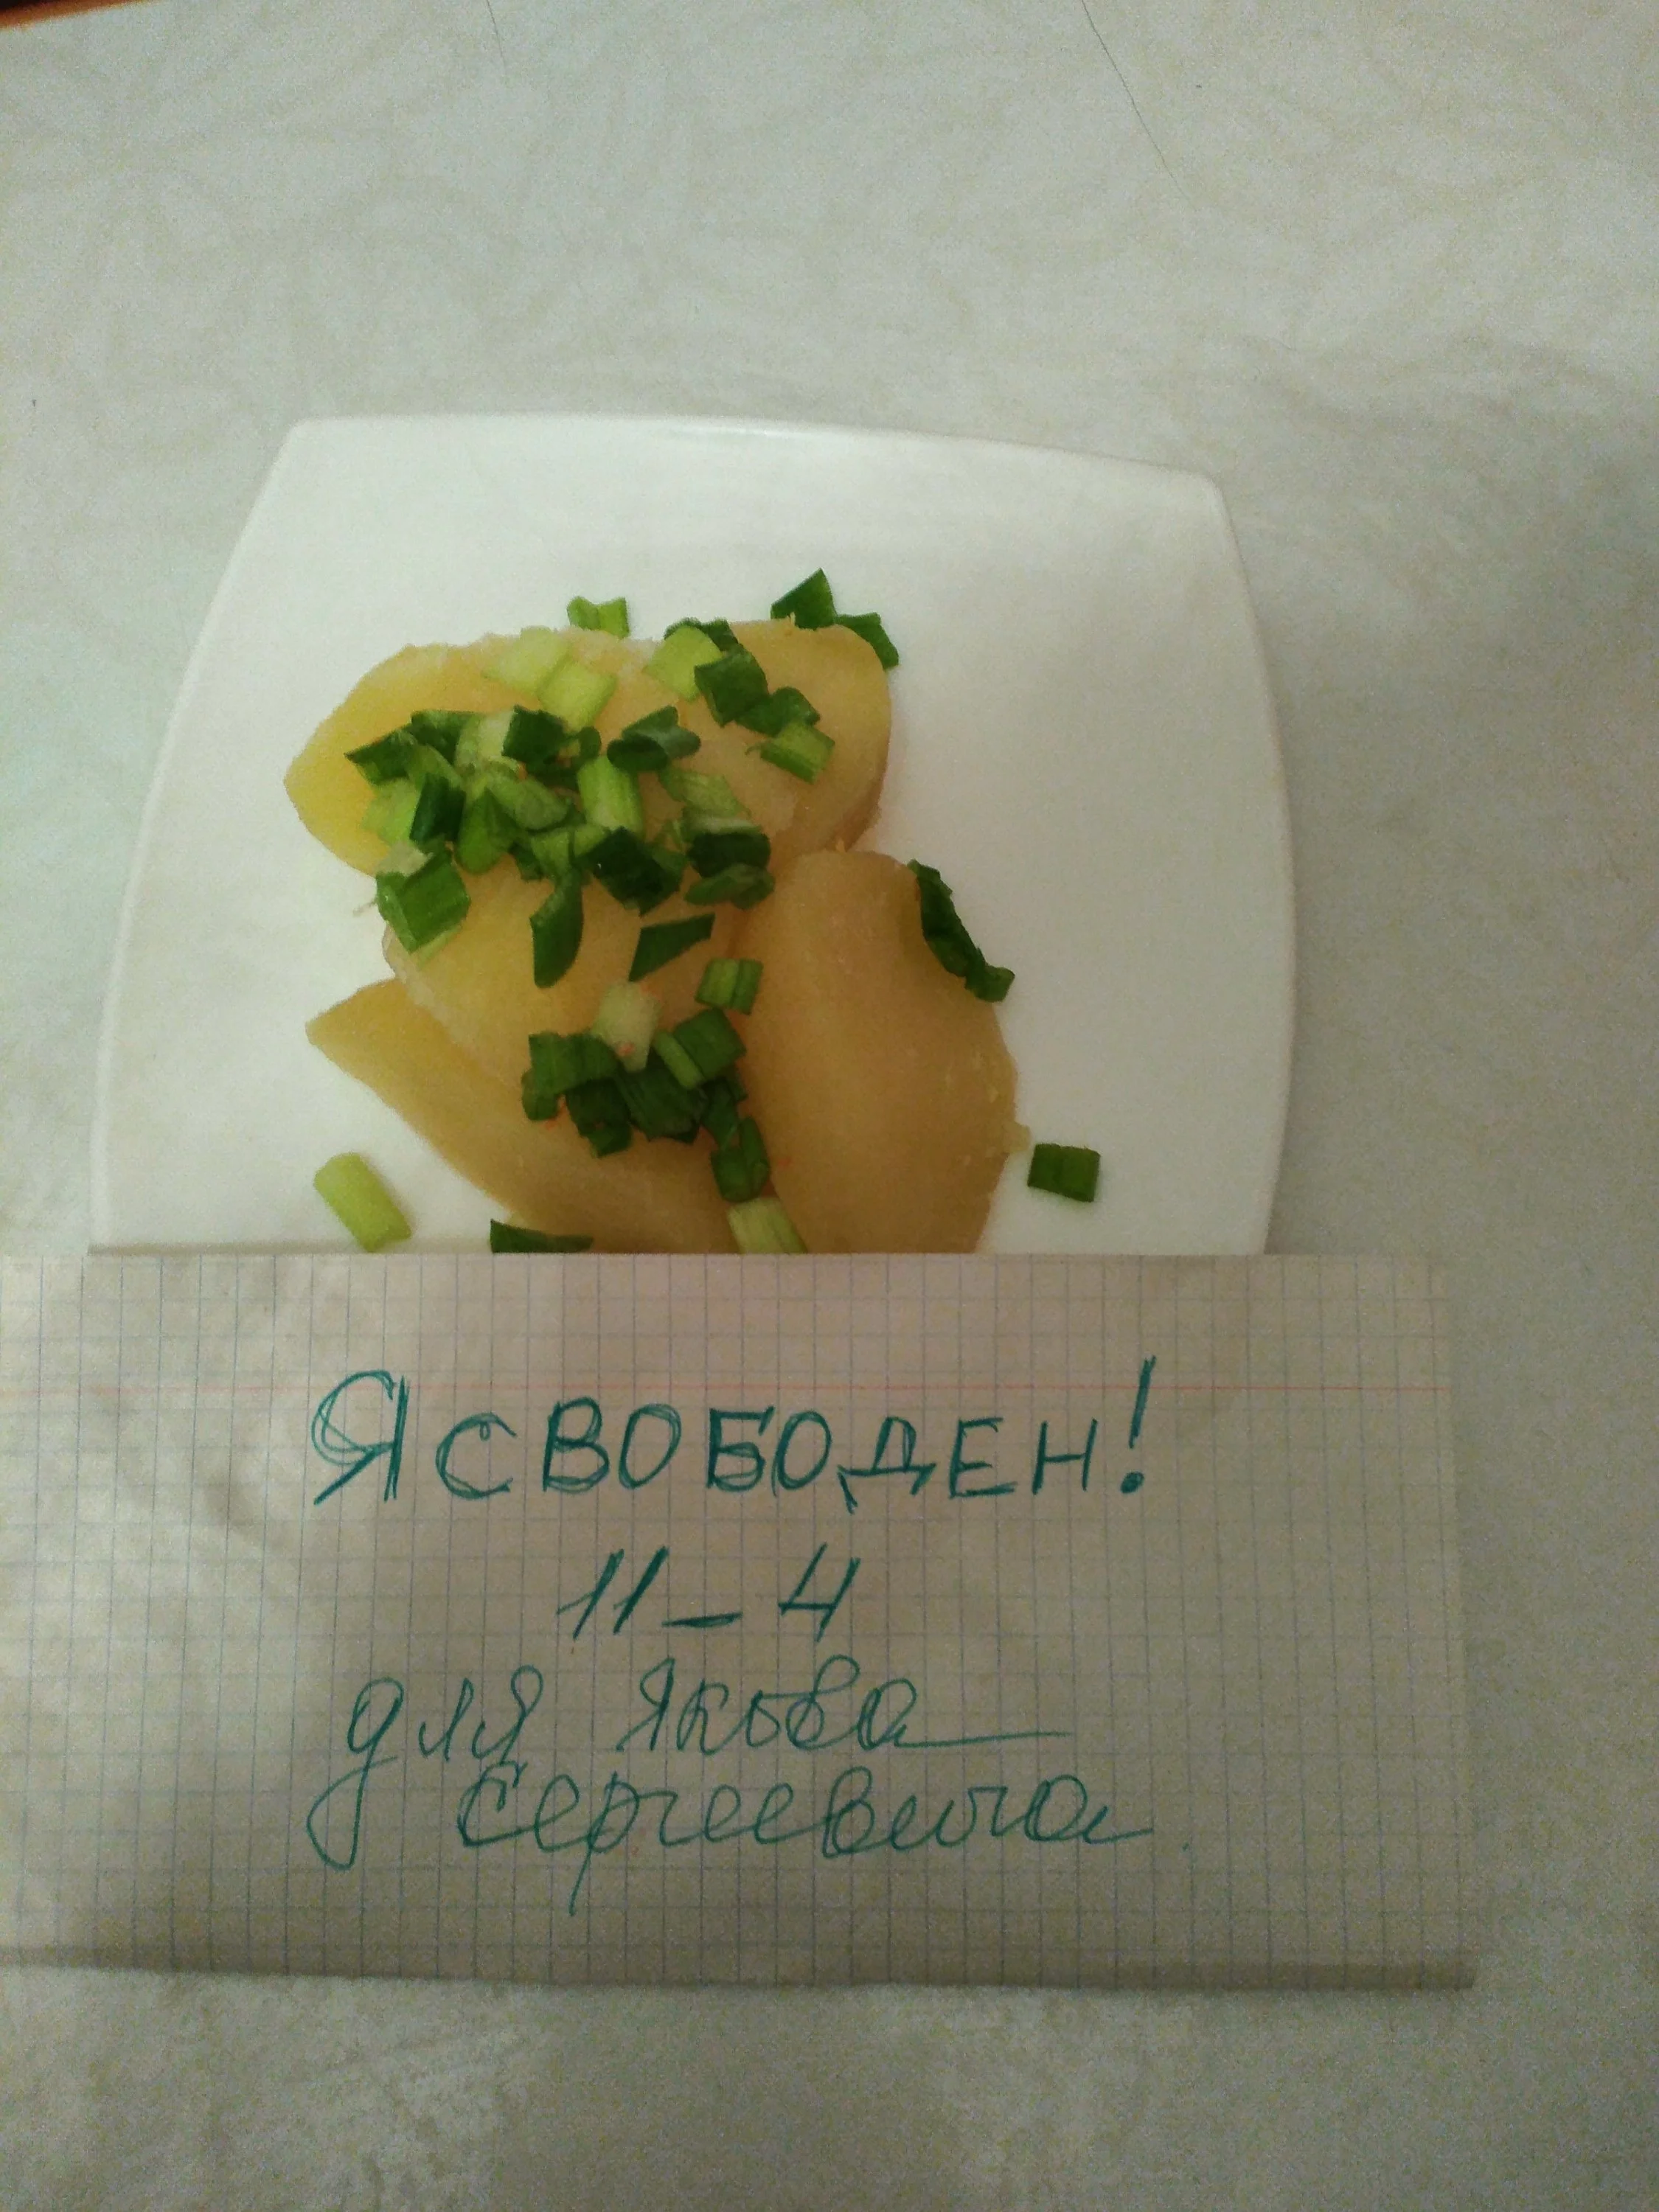 Я СВОБОДЕН!
11-4
для Якова
Сергеевича